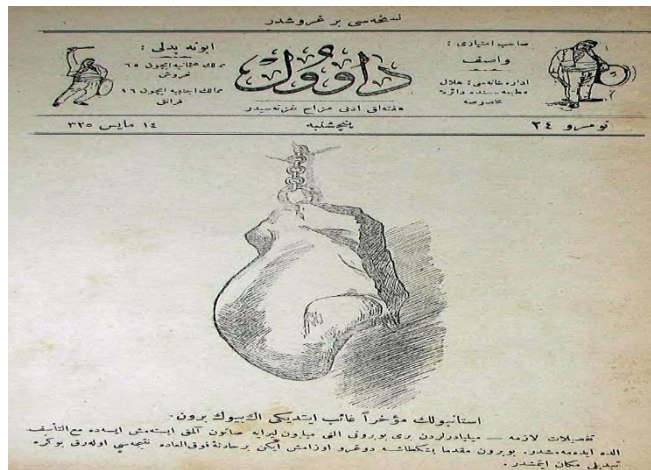 نسخه‌سی بر غروشدر
صاحب امتیازی :
واصف
اداره خانه‌سی : هلال
مطبعه سنده دائرۀ
مخصوصه
داوول
هفته‌لق ادبی مزاح غزته‌سیدر
ابونه بدلی :
ممالك عثمانیه ایچون ٦٥
غروش
ممالك اجنبیه ایچون ١٦
فرانق
نومرو ٢٤
پنچشنبه
١٤ مایس ٣٢٥
استانبولك مؤخراً غائب ایتدیكی اك بیوك برون.
تفصیلات لازمه — میلیاردلردن بری بورونی اللی میلیون لیرایه صاتون آلمق ایسته‌مش ایسه‌ده مع التأسف
الده ایده‌مه‌مشدر. بوبرون مقدما بشكطاشه دوغرو اوزامش ایكن بر حادثۀ فوق العاده نتیجه‌سی اوله‌رق بوكره
تبدیل مكان اتمشدر.